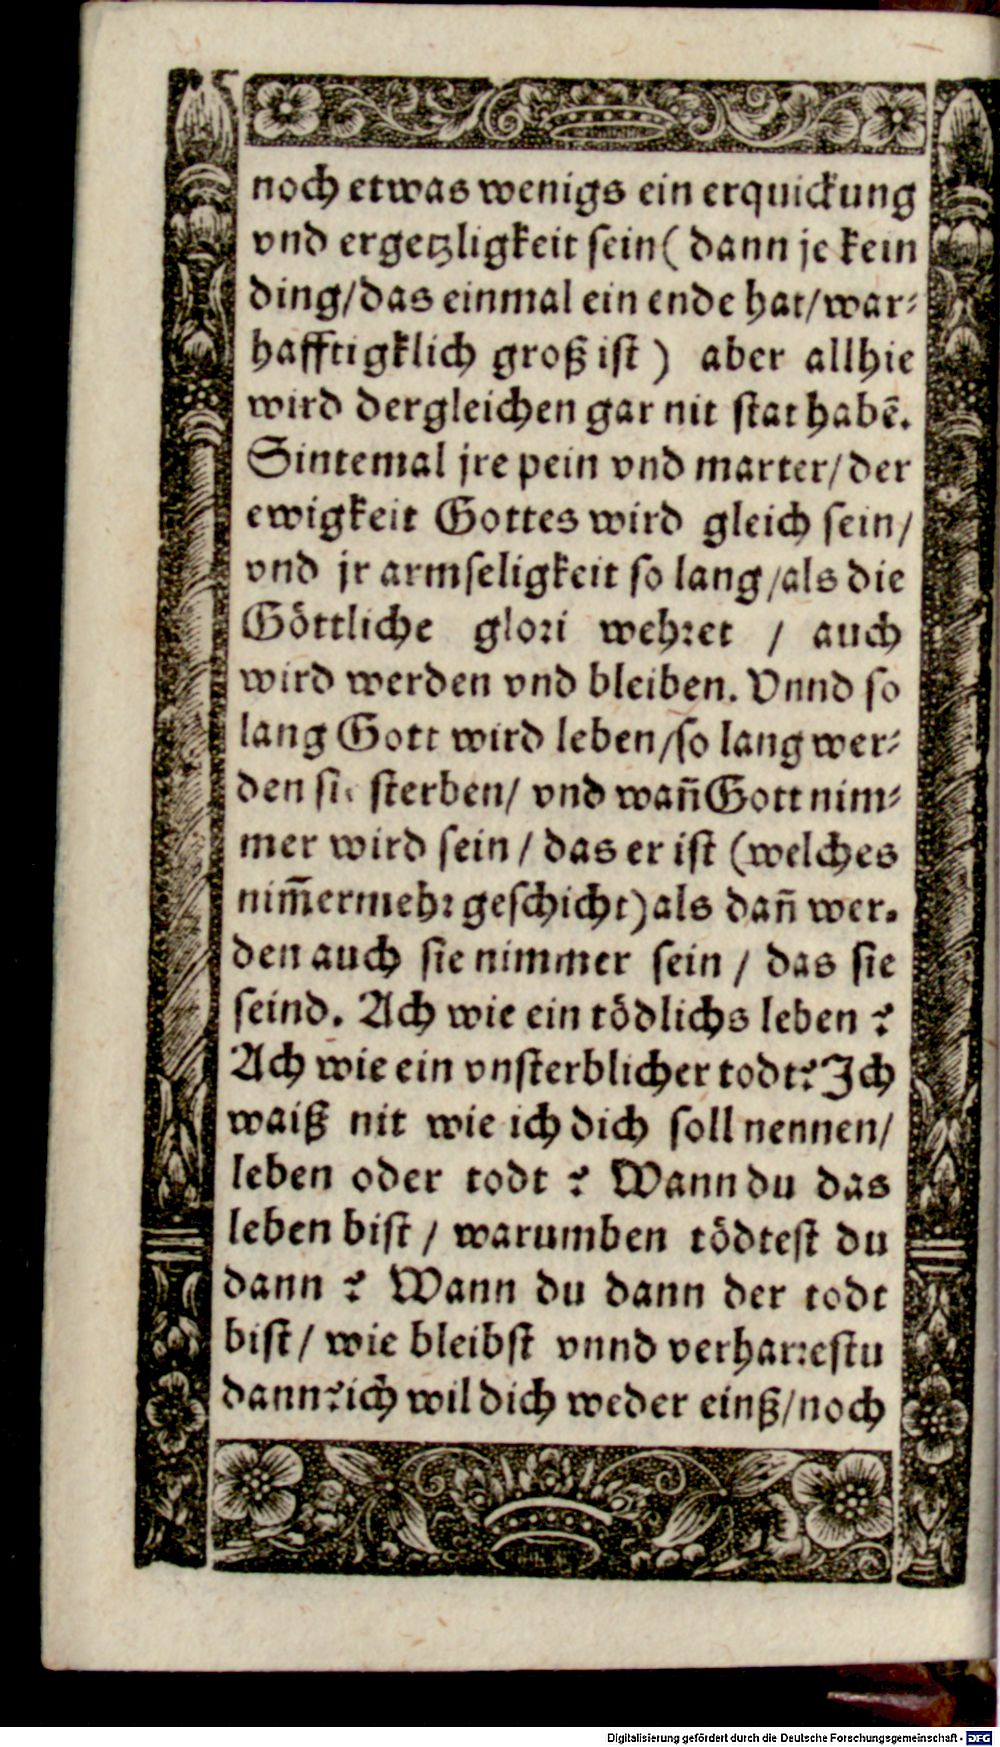 noch etwas wenigs ein erquickung
vnd ergetzligkeit sein( dann je kein
ding/das einmal ein ende hat/war⸗
hafftigklich groß ist ) aber allhie
wird dergleichen gar nit stat habē.
Sintemal jre pein vnd marter/der
ewigkeit Gottes wird gleich sein/
vnd jr armseligkeit so lang/als die
Göttliche glori wehret / auch
wird werden vnd bleiben. Vnnd so
lang Gott wird leben/so lang wer⸗
den sie sterben/ vnd wañ Gott nim⸗
mer wird sein/ das er ist (welches
nim̄ermehr geschicht) als dañ wer⸗
den auch sie nimmer sein / das sie
seind. Ach wie ein tödlichs leben ?
Ach wie ein vnsterblicher todt? Ich
waiß nit wie ich dich soll nennen/
leben oder todt ? Wann du das
leben bist / warumben tödtest du
dann ? Wann du dann der todt
bist/ wie bleibst vnnd verharrestu
dann? ich wil dich weder einß/noch
Digitalisierung gefördert durch die Deutsche Forschungsgemeinschaft - DFG